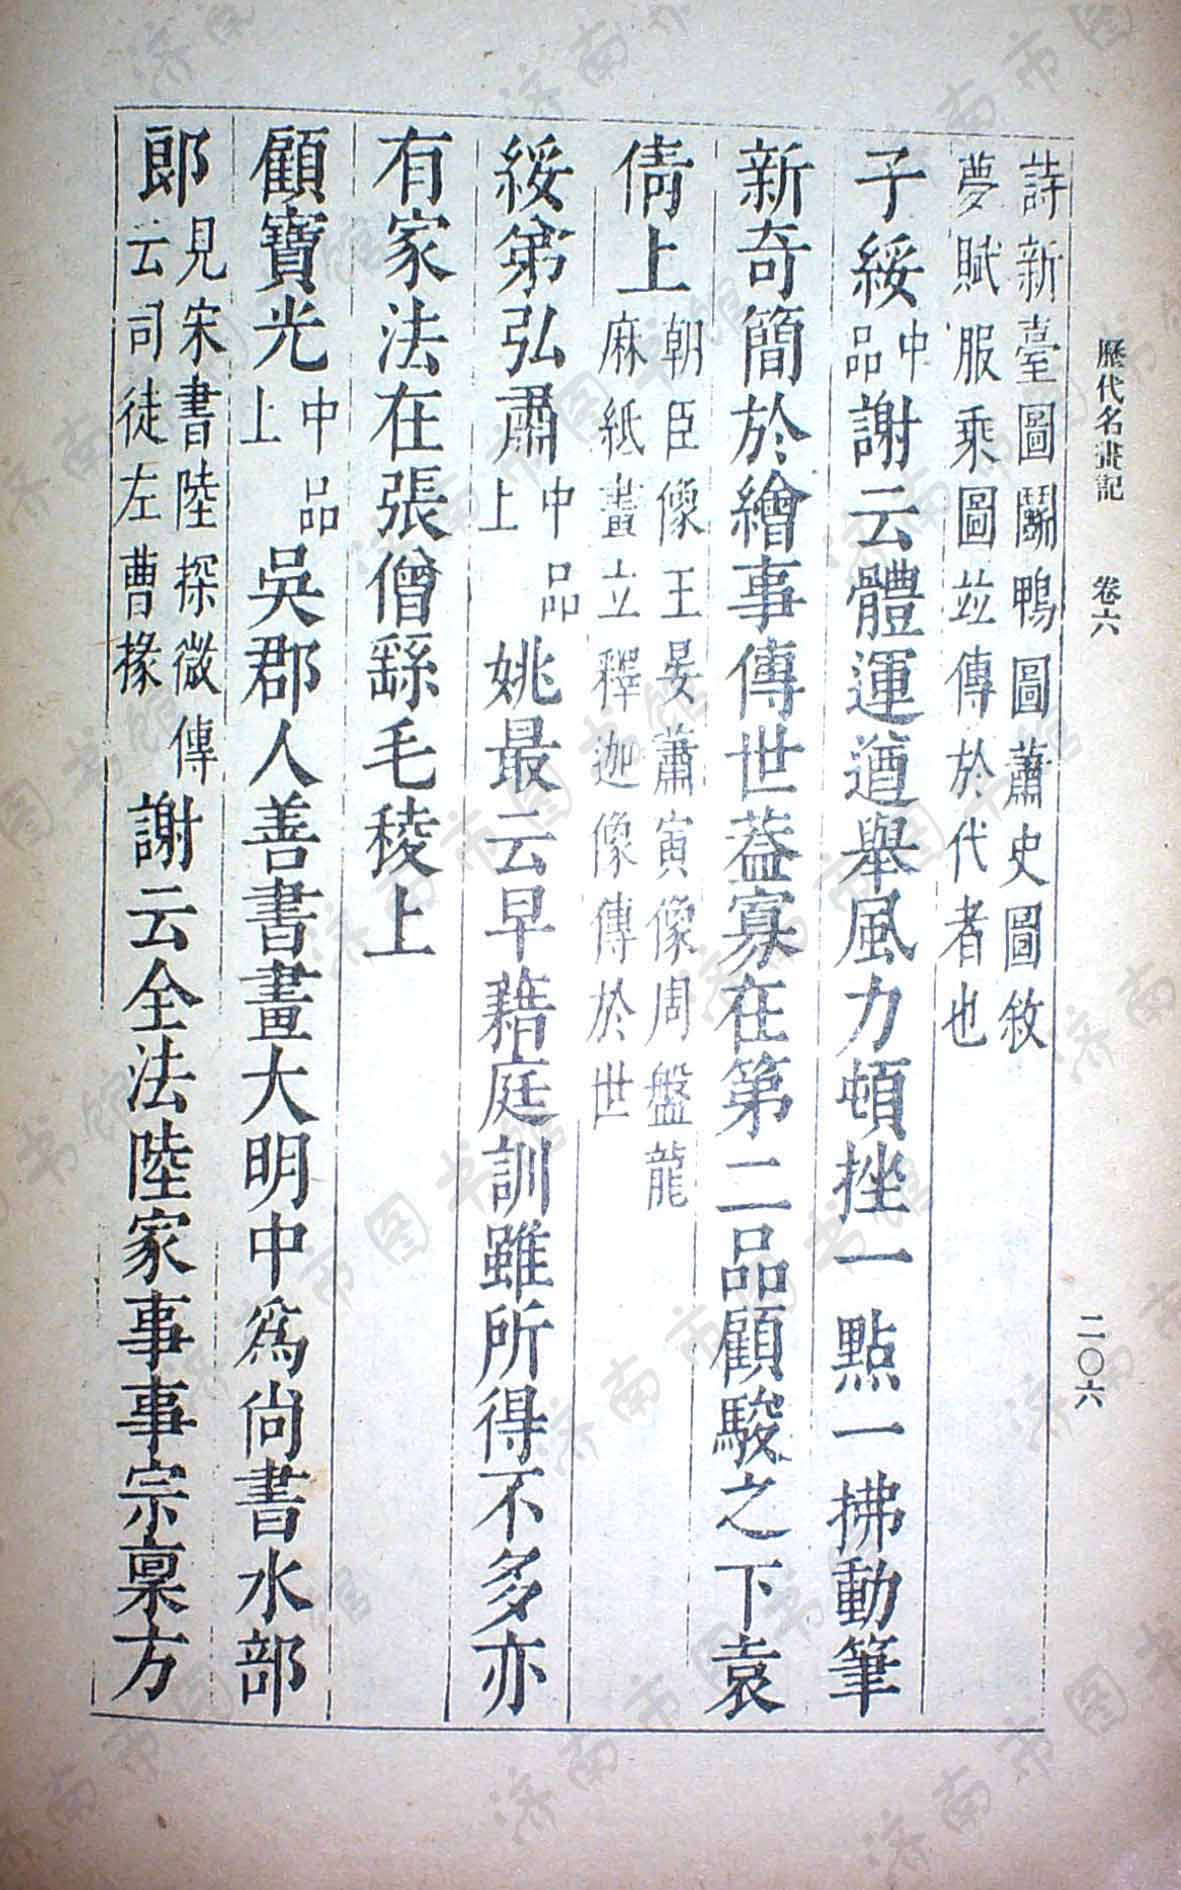 歷代名畫記　卷六　二〇六
詩新臺圖鬭鴨圖蕭史圖敘
夢賦服乘圖竝傳於代者也
子綏
中
品
謝云體運遒舉風力頓挫一點一拂動筆
新奇簡於繪事傳世葢寡在第二品顧駿之下袁
倩上
朝臣像王晏蕭寅像周盤龍
麻紙畫立釋迦像傳於世
綏弟弘肅
中品
上
姚最云早藉庭訓雖所得不多亦
有家法在張僧繇毛稜上
顧寶光
中品
上
吳郡人善書畫大明中爲尙書水部
郎
見宋書陸探微傳
云司徒左曹掾
謝云全法陸家事事宗禀方
济南市图书馆